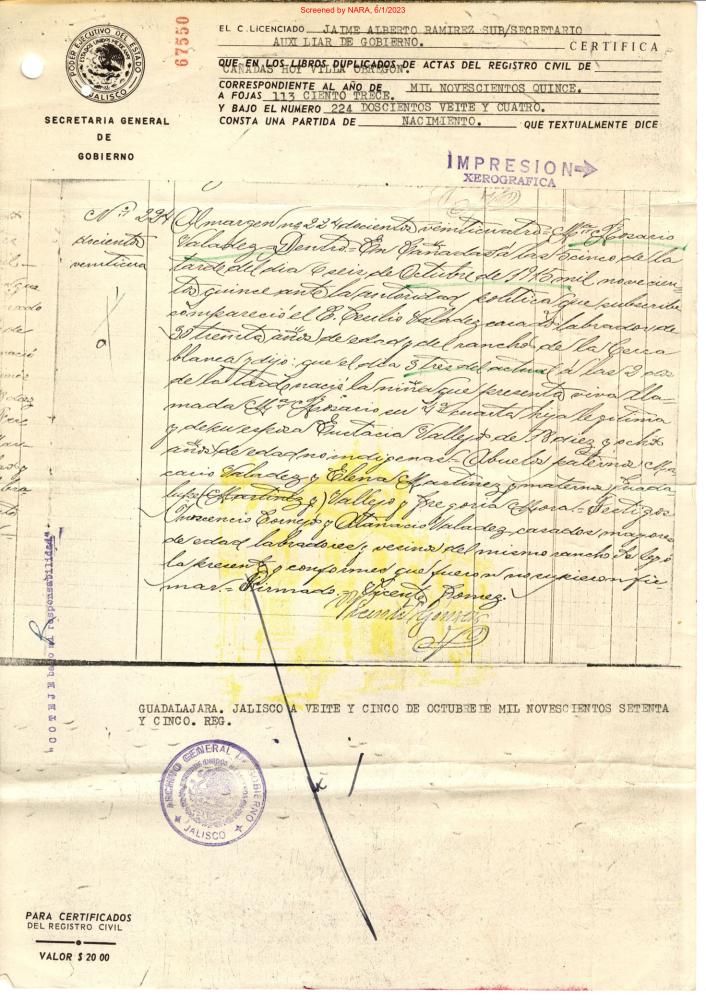 Screened by NARA, 6/1/2023
67550
PODER EJECUTIVO DEL ESTADO
ESTADOS UNIDOS MEXICANOS
JALISCO
SECRETARIA GENERAL
DE
GOBIERNO
EL C. LICENCIADO JAIME ALBERTO RAMIREZ SUB/SECRETARIO
AUXILIAR DE GOBIERNO. CERTIFICA
QUE EN LOS LIBROS DUPLICADOS DE ACTAS DEL REGISTRO CIVIL DE
CAÑADAS HOY VILLA OBREGON.
CORRESPONDIENTE AL AÑO DE MIL NOVESCIENTOS QUINCE.
A FOJAS 113 CIENTO TRECE.
Y BAJO EL NUMERO 224 DOSCIENTOS VEITE Y CUATRO.
CONSTA UNA PARTIDA DE NACIMIENTO. QUE TEXTUALMENTE DICE
IMPRESION
XEROGRAFICA
Nº 224
docientos
Al margen no 224 docientos veinticuatro = Mª Rosario
Valadez = Dentro = En Cañadas á las 5 cinco de la
tarde del dia 6 seis de Octubre de 1915 mil novecien-
tos quince ante la autoridad politica que subscribe
compareció el C. Cecilio Valadez casado labrador de
30 treinta años de edad y del rancho de la Cerca
blanca y dijo: que el dia 3 tres del actual á las 2 dos
de la tarde nació la niña que presenta viva lla-
mada Mª Rosario su 4ª cuarta hija legitima
y de su esposa Eutacia Vallejo de 18 diez y ocho
años de edad no indigenas = Abuelos paternos Ma-
cario Valadez y Elena Martinez y maternos Guada
lupe (Martinez y) Vallejo y Gregoria Mora = Testigos
Inocencio Cornejo y Atanacio Valadez casados mayores
de edad labradores y vecinos del mismo rancho. Se leyó
la presente y conformes que fueron no supieron fir
mar. = Firmado. Vicente Gomez.
Vicente Gomez
"COTEJE bajo mi responsabilidad".
GUADALAJARA. JALISCO A VEITE Y CINCO DE OCTUBRE DE MIL NOVESCIENTOS SETENTA
Y CINCO. REG.
ARCHIVO GENERAL DE GOBIERNO
JALISCO
PARA CERTIFICADOS
DEL REGISTRO CIVIL
VALOR $ 20 00